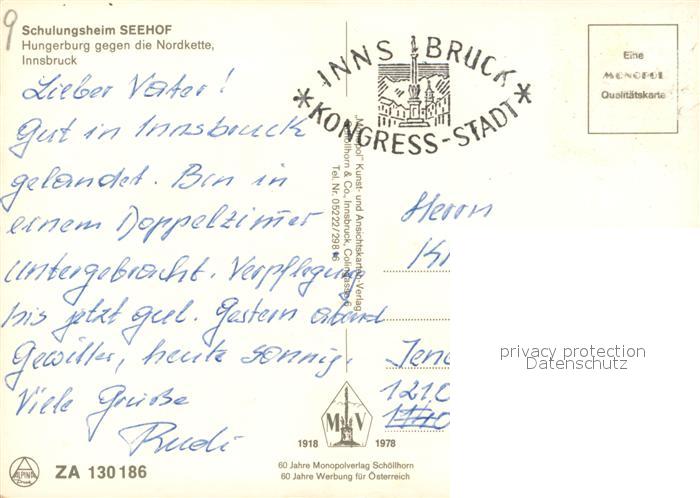 9
Schulungsheim SEEHOF
Hungerburg gegen die Nordkette,
Innsbruck
Lieber Vater!
Gut in Innsbruck
gelandet. Bin in
einem Doppelzimmer
untergebracht. Verpflegung
bis jetzt gut. Gestern abend
Gewitter, heute sonnig.
Viele Grüße
Rudi
ALPINA
Druck
ZA 130 186
INNSBRUCK
*KONGRESS-STADT*
"Monopol" Kunst- und Ansichtskarten-Verlag
Schöllhorn & Co., Innsbruck, Colingasse
Tel. Nr. 05222/29816
Eine
MONOPOL
Qualitätskarte
Herrn
privacy protection
Datenschutz
1210
M V
1918 1978
60 Jahre Monopolverlag Schöllhorn
60 Jahre Werbung für Österreich